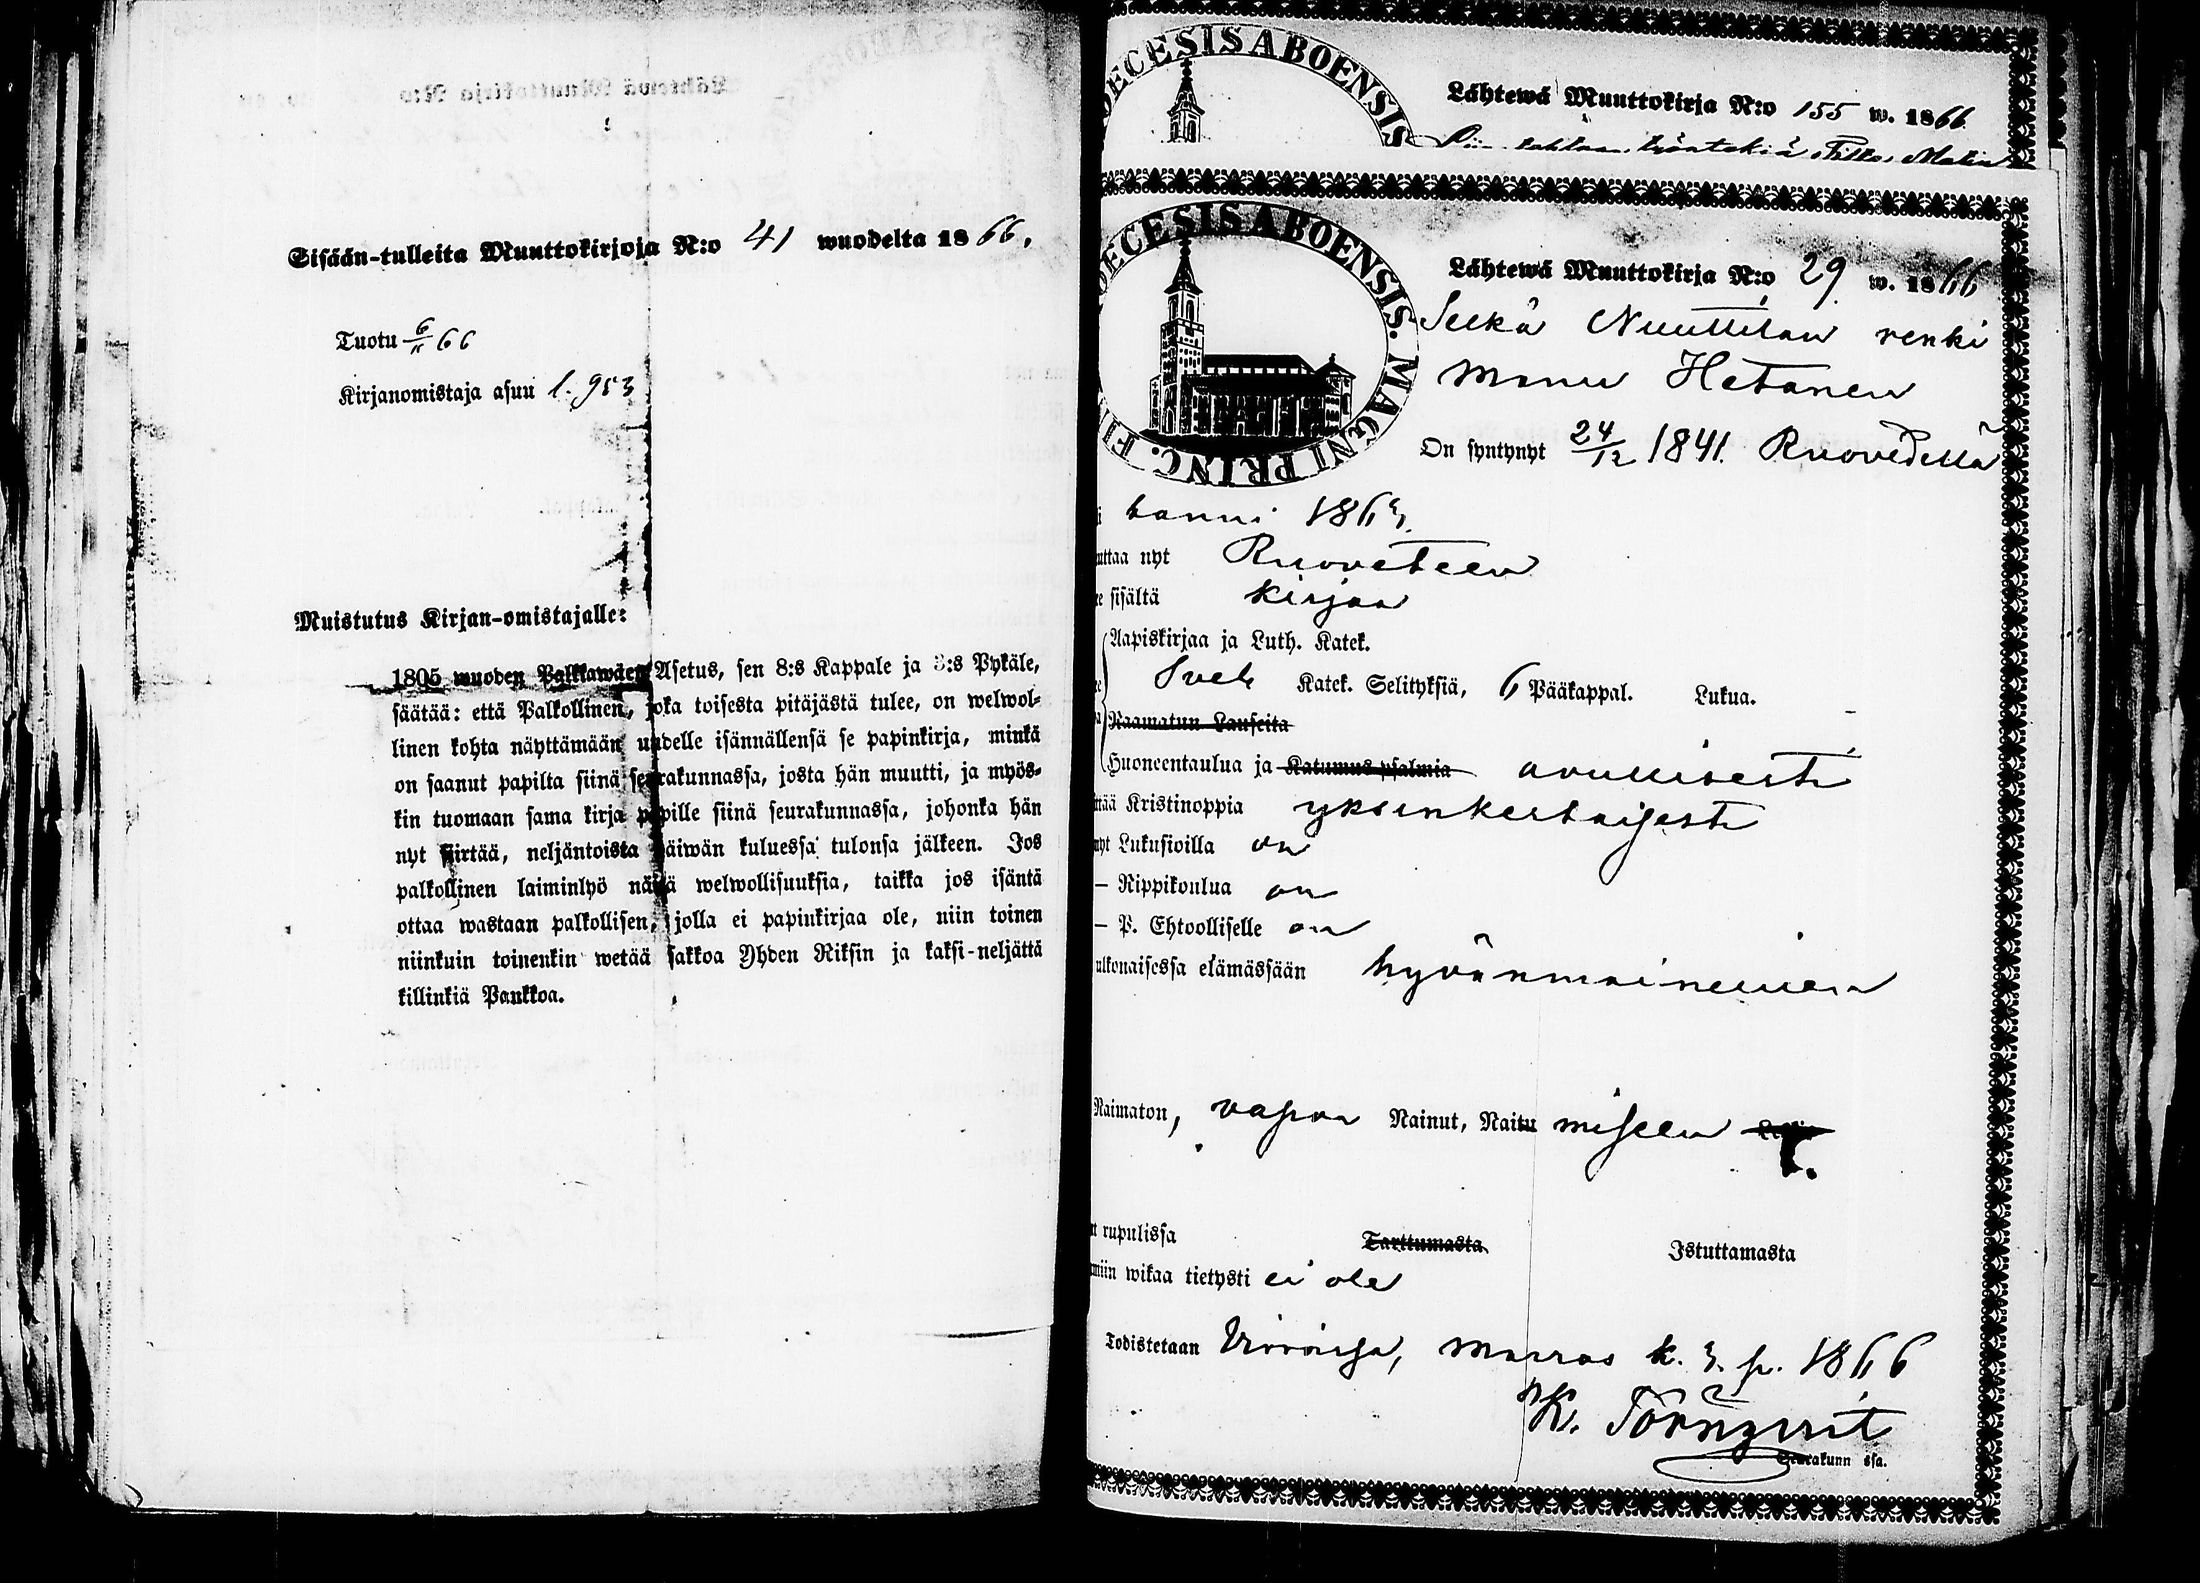 Sisään-tulleita Muuttokirjoja N:o 41 wuodelta 1866.
Tuotu 6/11 66
Kirjanomistaja asuu l. 953
Muistutus Kirjan-omistajalle:
1805 wuoden Palkkawäen Asetus, sen 8:s Kappale ja 3:s Pykäle,
säätää: että Palkollinen, joka toisesta pitäjästä tulee, on welwol-
linen kohta näyttämään uudelle isännällensä se papinkirja, minkä
on saanut papilta siinä seurakunnassa, josta hän muutti, ja myös-
kin tuomaan sama kirja papille siinä seurakunnassa, johonka hän
nyt siirtää, neljäntoista päiwän kuluessa tulonsa jälkeen. Jos
palkollinen laiminlyö näitä welwollisuuksia, taikka jos isäntä
ottaa wastaan palkollisen, jolla ei papinkirjaa ole, niin toinen
niinkuin toinenkin wetää sakkoa Yhden Riksin ja kaksi-neljättä
killinkiä Pankkoa.
DECESIS ABOENSIS
Lähtewä Muuttokirja N:o 155 w. 1866
työntekiä
DECESIS ABOENSIS. MAGNI PRINC. FI
Lähtewä Muuttokirja N:o 29 w. 1866
Nuuttilan renki
Manu Hetanen
On syntynyt 24/12 1841. Ruovedellä
tänni 1863.
uttaa nyt Ruoveteen
e sisältä kirjaa
Aapiskirjaa ja Luth. Katek.
Sveb Katek. Selityksiä, 6 Pääkappal. Lukua.
Raamatun Lauseita
Huoneentaulua ja Katumus psalmia avullisesti
ttää Kristinoppia yksinkertaisesti
nyt Lukusioilla on
— Rippikoulua on
— P. Ehtoolliselle on
ulkonaisessa elämässään hyvänmaineinen
Naimaton, vapaa Nainut, Naitu miseen
t rupulissa Tarttumasta Istuttamasta
miin wikaa tietysti ei ole
Todistetaan Virroisa, marras k. 3. p. 1866
K. Törnqvist
Seurakunn ssa.